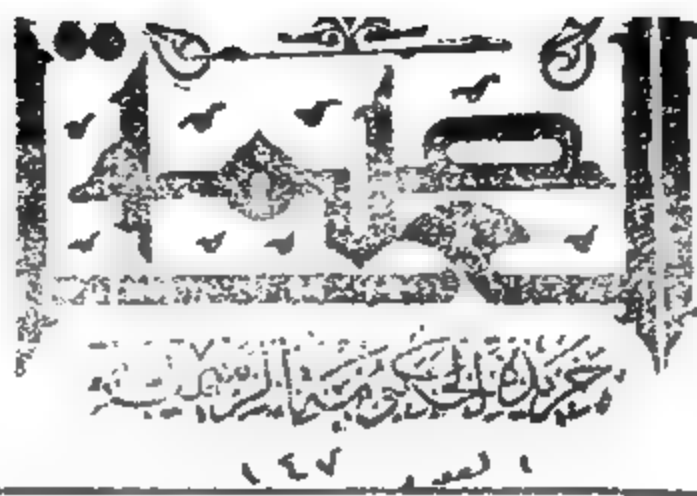 العاصمة
جريدة الحكومة الرسمية
١٤٧